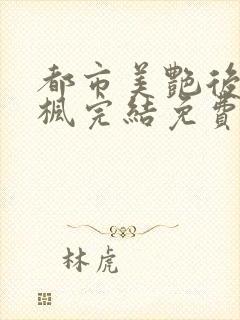 都市美艷後
楓完結免費
林虎